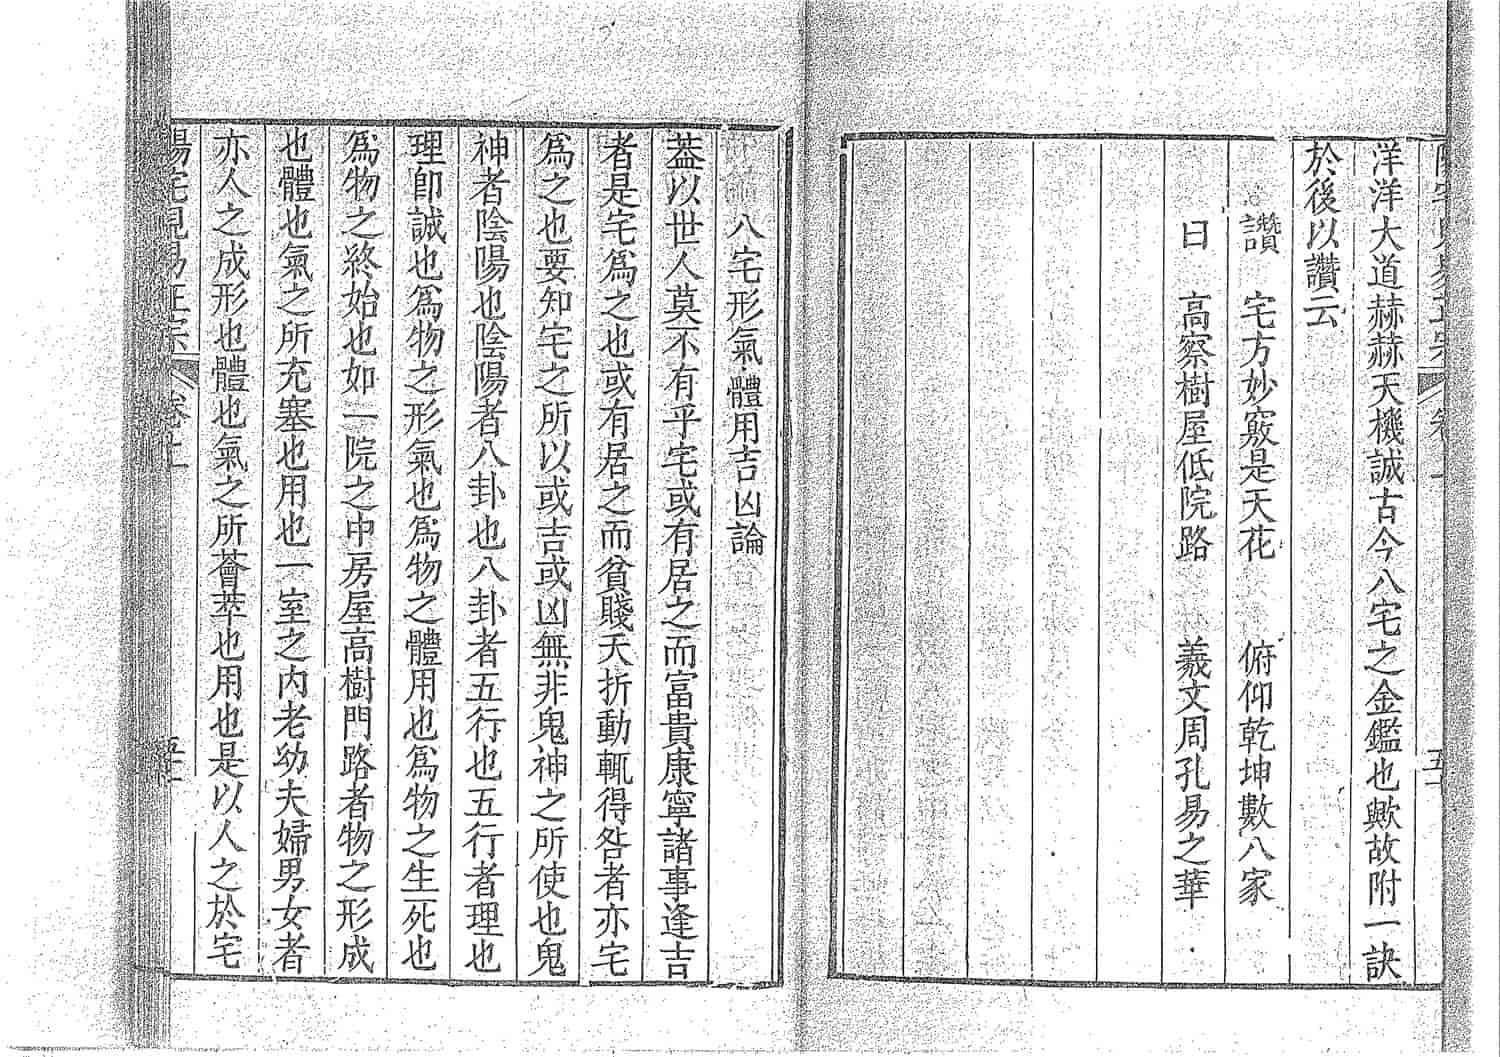 洋洋大道赫赫天機誠古今八宅之金鑑也歟故附一訣
於後以讚云
讚 宅方妙竅是天花 俯仰乾坤數八家
曰 高察樹屋低院路 羲文周孔易之華
八宅形氣體用吉凶論
蓋以世人莫不有乎宅或有居之而富貴康寧諸事逢吉
者是宅爲之也或有居之而貧賤夭折動輒得咎者亦宅
爲之也要知宅之所以或吉或凶無非鬼神之所使也鬼
神者陰陽也陰陽者八卦也八卦者五行也五行者理也
理即誠也爲物之形氣也爲物之體用也爲物之生死也
爲物之終始也如一院之中房屋高樹門路者物之形成
也體也氣之所充塞也用也一室之內老幼夫婦男女者
亦人之成形也體也氣之所薈萃也用也是以人之於宅
陽宅見易正宗 卷上